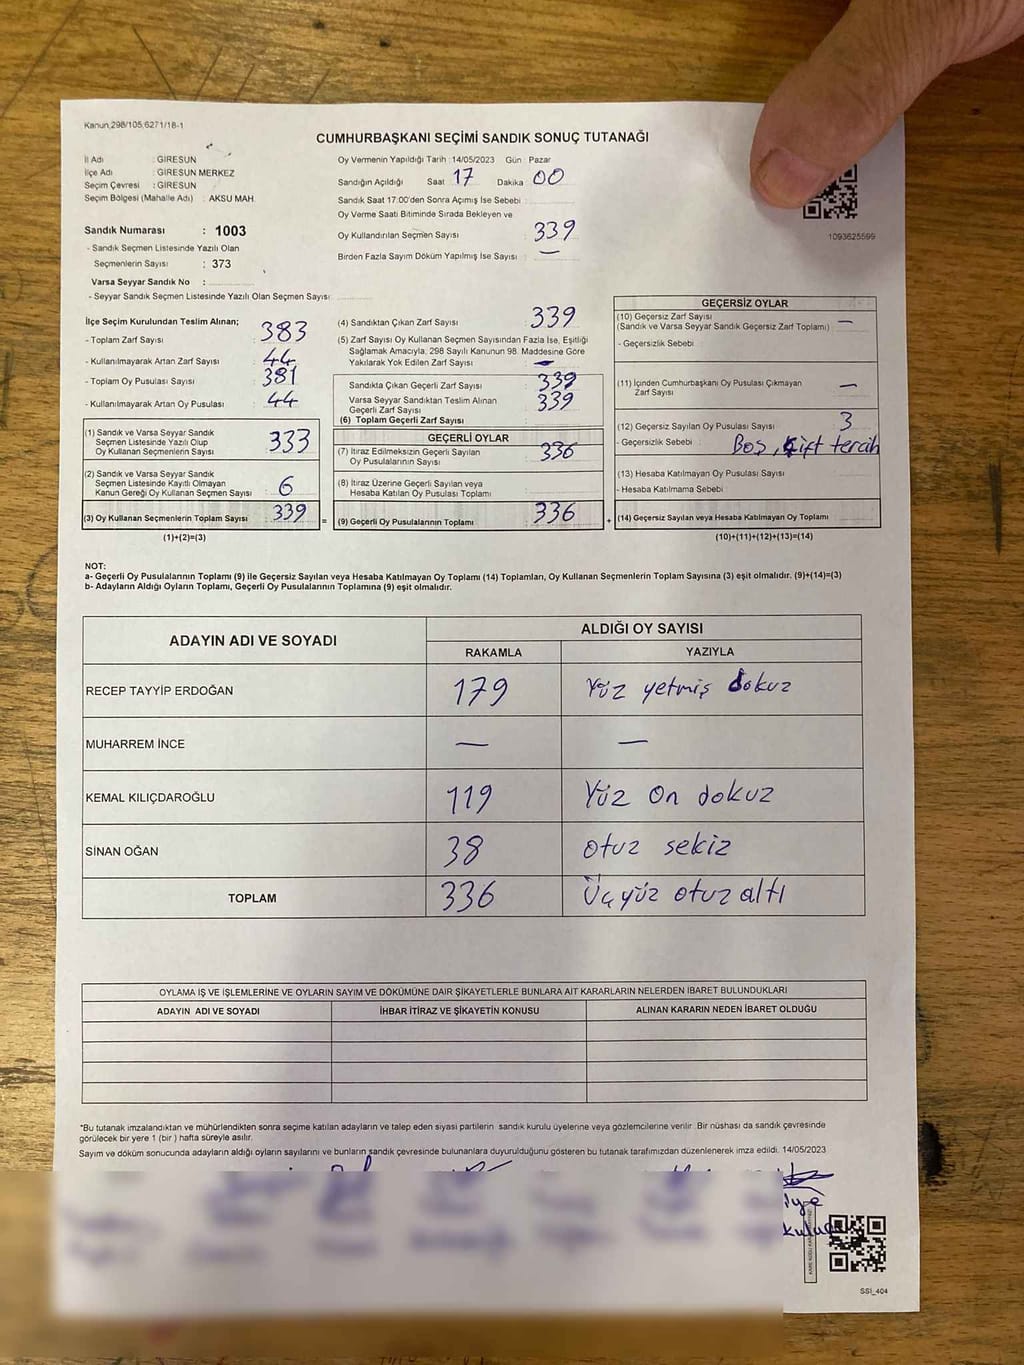 Kanun,298/105,6271/18-1
CUMHURBAŞKANI SEÇİMİ SANDIK SONUÇ TUTANAĞI
İl Adı : GİRESUN
İlçe Adı : GİRESUN MERKEZ
Seçim Çevresi : GİRESUN
Seçim Bölgesi (Mahalle Adı) : AKSU MAH.
Oy Vermenin Yapıldığı Tarih : 14/05/2023 Gün : Pazar
Sandığın Açıldığı Saat 17 Dakika 00
Sandık Saat 17:00'den Sonra Açımış İse Sebebi :
Oy Verme Saati Bitiminde Sırada Bekleyen ve
Oy Kullandırılan Seçmen Sayısı : 339
Birden Fazla Sayım Döküm Yapılmış İse Sayısı : —
1093625599
Sandık Numarası : 1003
- Sandık Seçmen Listesinde Yazılı Olan
Seçmenlerin Sayısı : 373
Varsa Seyyar Sandık No :
- Seyyar Sandık Seçmen Listesinde Yazılı Olan Seçmen Sayısı :
İlçe Seçim Kurulundan Teslim Alınan;
- Toplam Zarf Sayısı : 383
- Kullanılmayarak Artan Zarf Sayısı : 44
- Toplam Oy Pusulası Sayısı : 381
- Kullanılmayarak Artan Oy Pusulası : 44
(1) Sandık ve Varsa Seyyar Sandık
Seçmen Listesinde Yazılı Olup
Oy Kullanan Seçmenlerin Sayısı 333
(2) Sandık ve Varsa Seyyar Sandık
Seçmen Listesinde Kayıtlı Olmayan
Kanun Gereği Oy Kullanan Seçmen Sayısı 6
(3) Oy Kullanan Seçmenlerin Toplam Sayısı 339 =
(1)+(2)=(3)
(4) Sandıktan Çıkan Zarf Sayısı : 339
(5) Zarf Sayısı Oy Kullanan Seçmen Sayısından Fazla İse, Eşitliği
Sağlamak Amacıyla, 298 Sayılı Kanunun 98. Maddesine Göre
Yakılarak Yok Edilen Zarf Sayısı : —
Sandıkta Çıkan Geçerli Zarf Sayısı : 339
Varsa Seyyar Sandıktan Teslim Alınan
Geçerli Zarf Sayısı : 339
(6) Toplam Geçerli Zarf Sayısı :
GEÇERLİ OYLAR
(7) İtiraz Edilmeksizin Geçerli Sayılan
Oy Pusulalarının Sayısı : 336
(8) İtiraz Üzerine Geçerli Sayılan veya
Hesaba Katılan Oy Pusulası Toplamı
(9) Geçerli Oy Pusulalarının Toplamı 336 +
GEÇERSİZ OYLAR
(10) Geçersiz Zarf Sayısı
(Sandık ve Varsa Seyyar Sandık Geçersiz Zarf Toplamı) : —
- Geçersizlik Sebebi :
(11) İçinden Cumhurbaşkanı Oy Pusulası Çıkmayan
Zarf Sayısı : —
(12) Geçersiz Sayılan Oy Pusulası Sayısı : 3
- Geçersizlik Sebebi : Boş, Çift tercih
(13) Hesaba Katılmayan Oy Pusulası Sayısı :
- Hesaba Katılmama Sebebi :
(14) Geçersiz Sayılan veya Hesaba Katılmayan Oy Toplamı
(10)+(11)+(12)+(13)=(14)
NOT:
a- Geçerli Oy Pusulalarının Toplamı (9) ile Geçersiz Sayılan veya Hesaba Katılmayan Oy Toplamı (14) Toplamları, Oy Kullanan Seçmenlerin Toplam Sayısına (3) eşit olmalıdır. (9)+(14)=(3)
b- Adayların Aldığı Oyların Toplamı, Geçerli Oy Pusulalarının Toplamına (9) eşit olmalıdır.
ADAYIN ADI VE SOYADI ALDIĞI OY SAYISI
RAKAMLA YAZIYLA
RECEP TAYYİP ERDOĞAN 179 Yüz yetmiş dokuz
MUHARREM İNCE — —
KEMAL KILIÇDAROĞLU 119 Yüz on dokuz
SİNAN OĞAN 38 otuz sekiz
TOPLAM 336 Üçyüz otuz altı
OYLAMA İŞ VE İŞLEMLERİNE VE OYLARIN SAYIM VE DÖKÜMÜNE DAİR ŞİKAYETLERLE BUNLARA AİT KARARLARIN NELERDEN İBARET BULUNDUKLARI
ADAYIN ADI VE SOYADI İHBAR İTİRAZ VE ŞİKAYETİN KONUSU ALINAN KARARIN NEDEN İBARET OLDUĞU
*Bu tutanak imzalandıktan ve mühürlendikten sonra seçime katılan adayların ve talep eden siyasi partilerin sandık kurulu üyelerine veya gözlemcilerine verilir. Bir nüshası da sandık çevresinde
görülecek bir yere 1 (bir ) hafta süreyle asılır.
Sayım ve döküm sonucunda adayların aldığı oyların sayılarını ve bunların sandık çevresinde bulunanlara duyurulduğunu gösteren bu tutanak tarafımızdan düzenlenerek imza edildi. 14/05/2023
SSİ_404